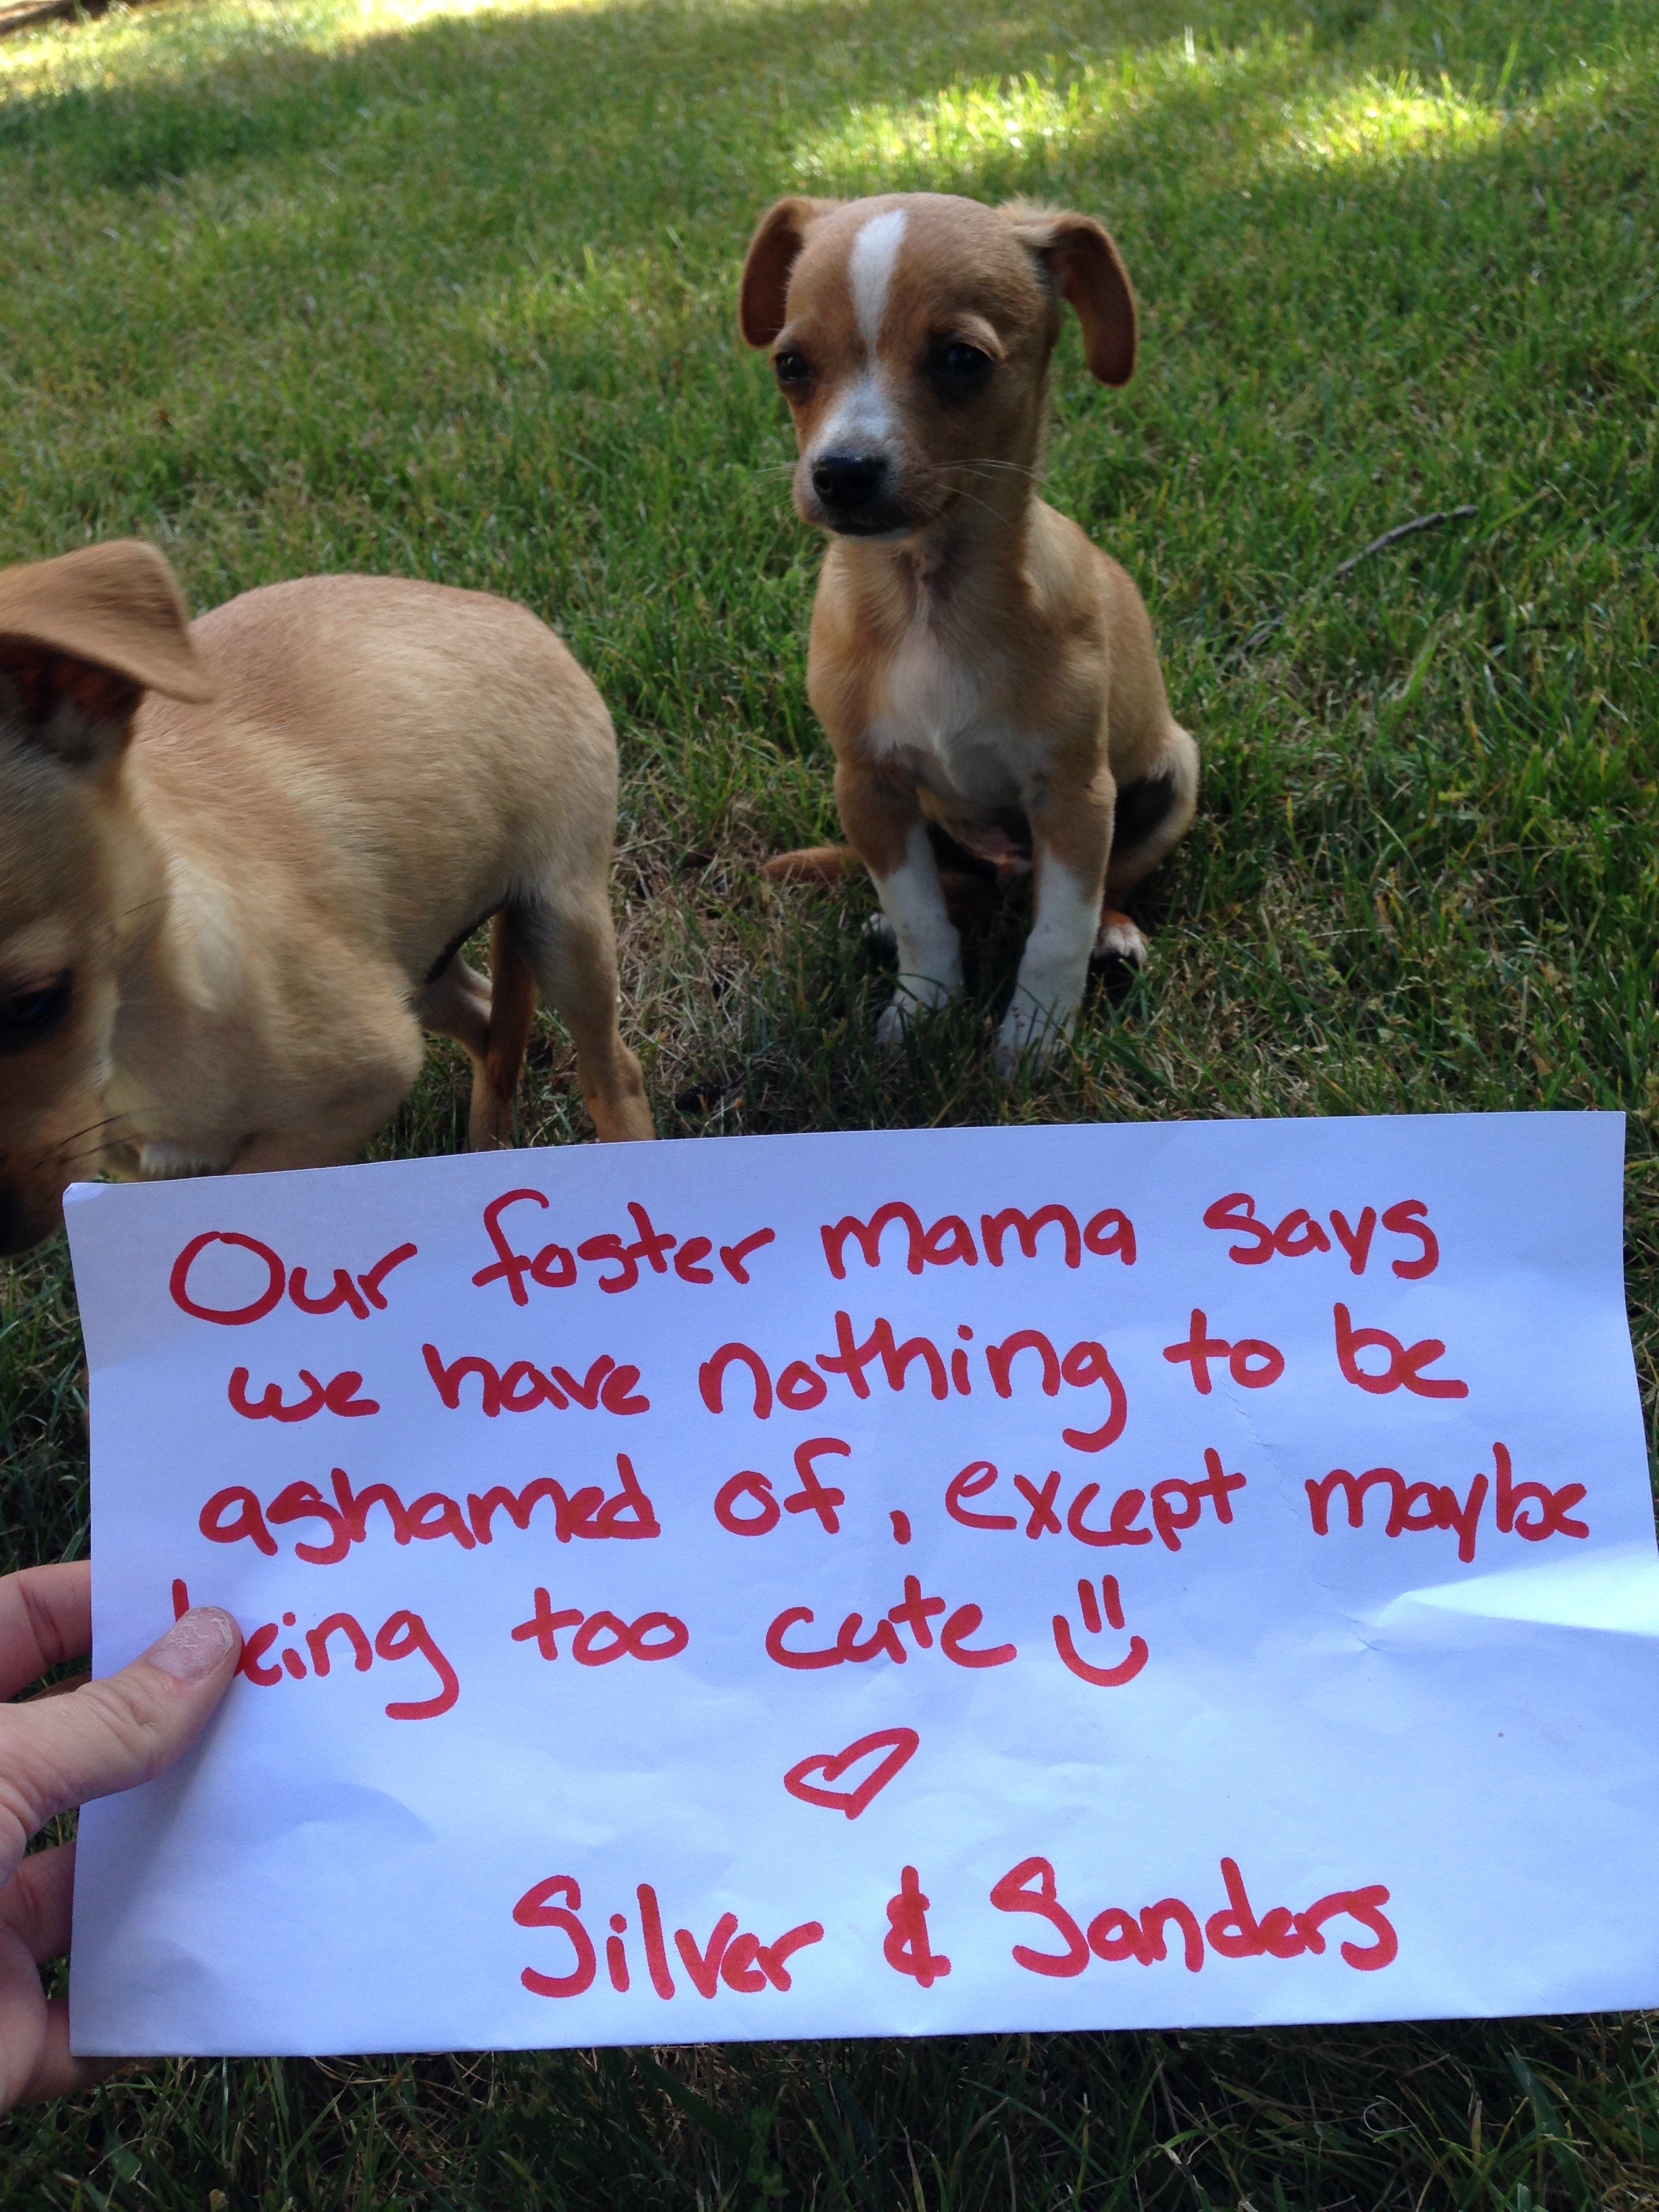 Our foster mama says
we have nothing to be
ashamed of, except maybe
being too cute
Silver & Sanders